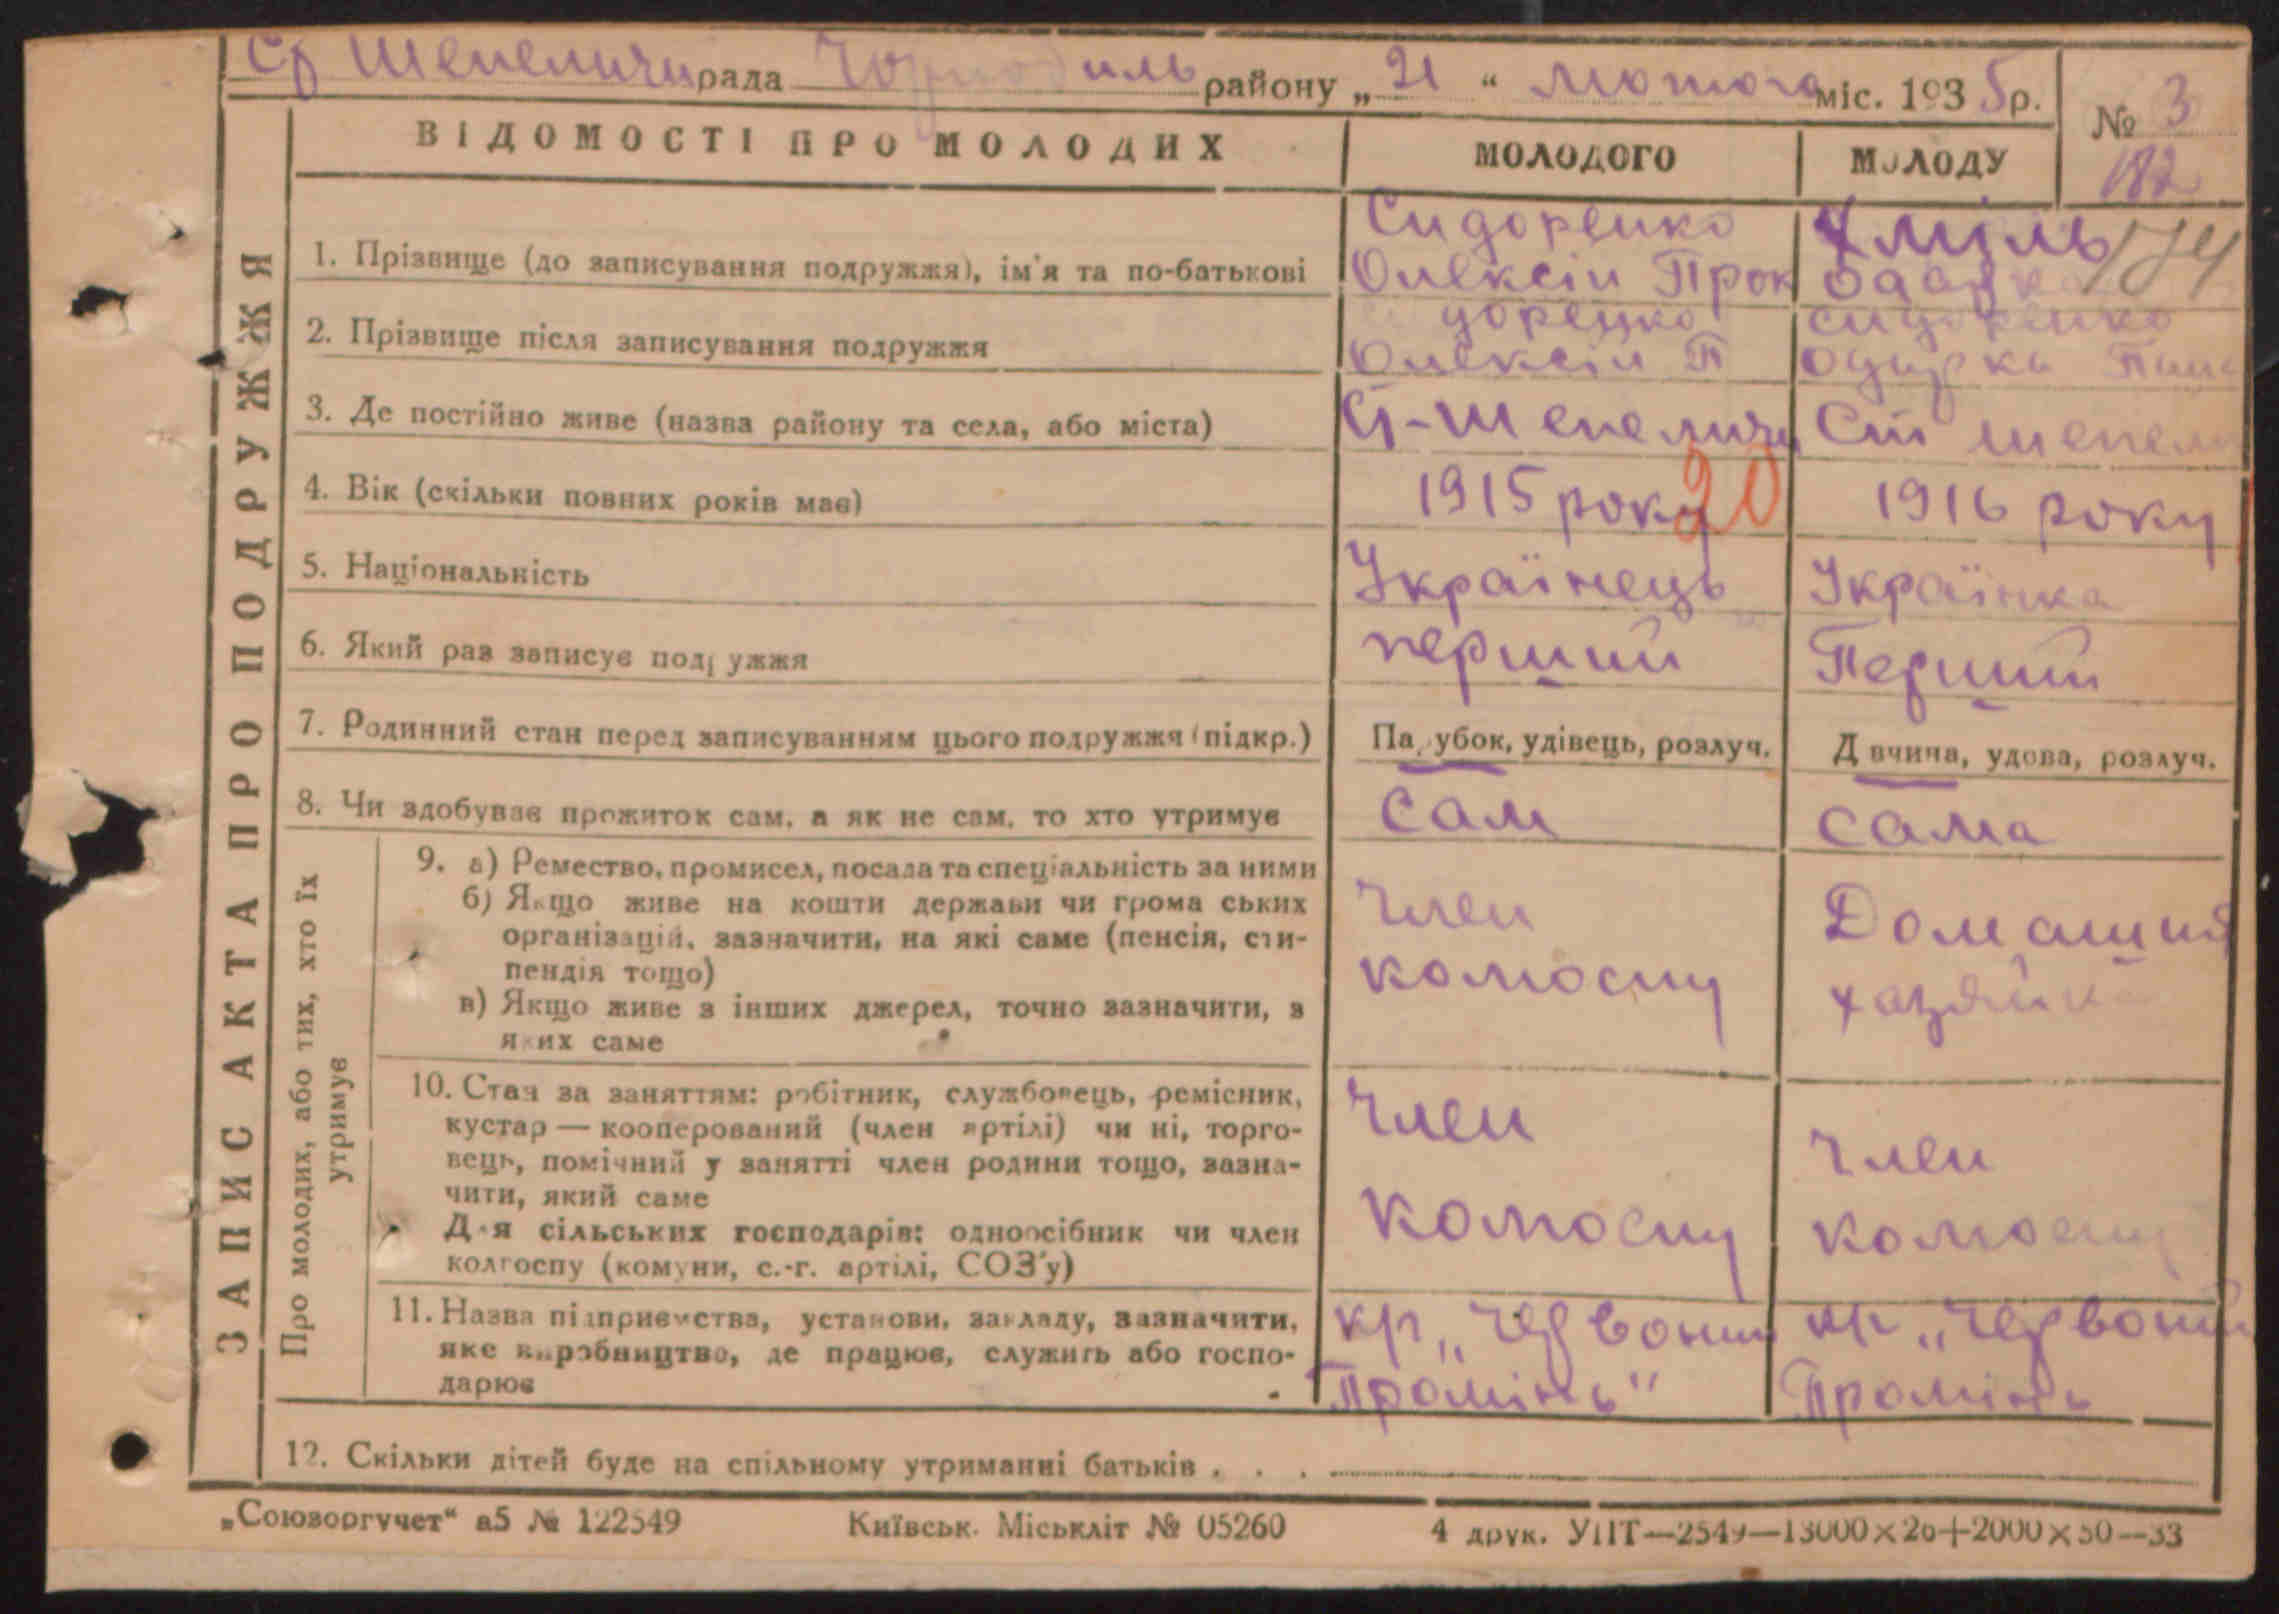 Ст Шепеличи рада Чорнобиль району „21“ лютого міс. 1935р.
№ 3
182
174
ЗАПИС АКТА ПРО ПОДРУЖЖЯ
ВІДОМОСТІ ПРО МОЛОДИХ МОЛОДОГО МОЛОДУ
1. Прізвище (до записування подружжя), ім'я та по-батькові
Сидоренко
Олексій Прок
Хміль
Одарка
2. Прізвище після записування подружжя
доренко
Олексій П
Сидоренко
Одарка
3. Де постійно живе (назва району та села, або міста) Ст-Шепеличи Ст шепели
4. Вік (скільки повних років має) 1915 року 20 1916 року
5. Національність Українець Українка
6. Який раз записує подружжя перший Перший
7. Родинний стан перед записуванням цього подружжя (підкр.) Парубок, удівець, розлуч. Дівчина, удова, розлуч.
8. Чи здобуває прожиток сам, а як не сам, то хто утримує сам сама
Про молодих, або тих, хто їх
утримує
9. а) Ремество, промисел, посада та спеціальність за ними
б) Якщо живе на кошти держави чи громадських
організацій, зазначити, на які саме (пенсія, сти-
пендія тощо)
в) Якщо живе з інших джерел, точно зазначити, з
яких саме
член
колгоспу
Домашня
хазяйка
10. Стан за заняттям: робітник, службовець, ремісник,
кустар — кооперований (член артілі) чи ні, торго-
вець, помічний у занятті член родини тощо, зазна-
чити, який саме
Для сільських господарів: одноосібник чи член
колгоспу (комуни, с.-г. артілі, СОЗ'у)
член
колгоспу
член
колгоспу
11. Назва підприємства, установи, закладу, зазначити,
яке виробництво, де працює, служить або госпо-
дарює
кр „Червоний
Промінь"
кр „Червоний
Промінь
12. Скільки дітей буде на спільному утриманні батьків . . .
„Союзоргучет" а5 № 122549 Київськ. Міськліт № 05260 4 друк. УПТ—2549—13000×26+2000×50—33